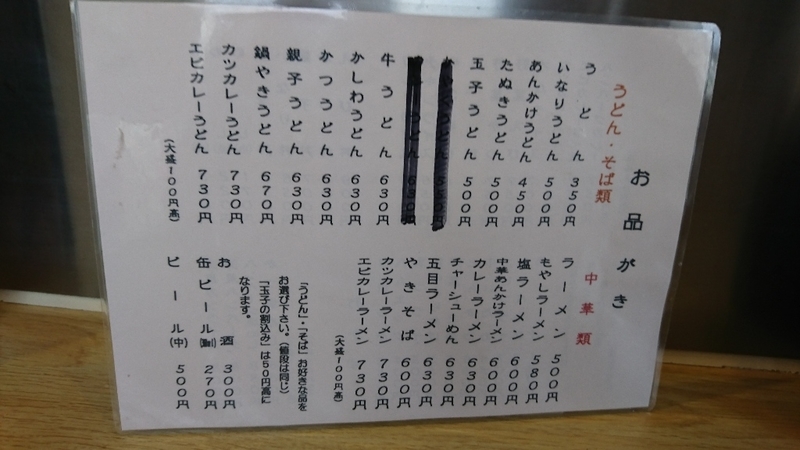 お品がき
うどん・そば類
うどん 350円
いなりうどん 500円
あんかけうどん 450円
たぬきうどん 500円
玉子うどん 500円
牛うどん 630円
かしわうどん 630円
かつうどん 630円
親子うどん 630円
鍋やきうどん 670円
カツカレーうどん 730円
エビカレーうどん 730円
(大盛100円高)
中華類
ラーメン 500円
もやしラーメン 580円
塩ラーメン 600円
中華あんかけラーメン 600円
カレーラーメン 630円
チャーシューめん 630円
五目ラーメン 630円
やきそば 600円
カツカレーラーメン 730円
エビカレーラーメン 730円
(大盛100円高)
「うどん」・「そば」お好きな品を
お選び下さい。(値段は同じ)
「玉子の割込み」は50円高に
なります。
お酒 300円
缶ビール 270円
ビール(中) 500円